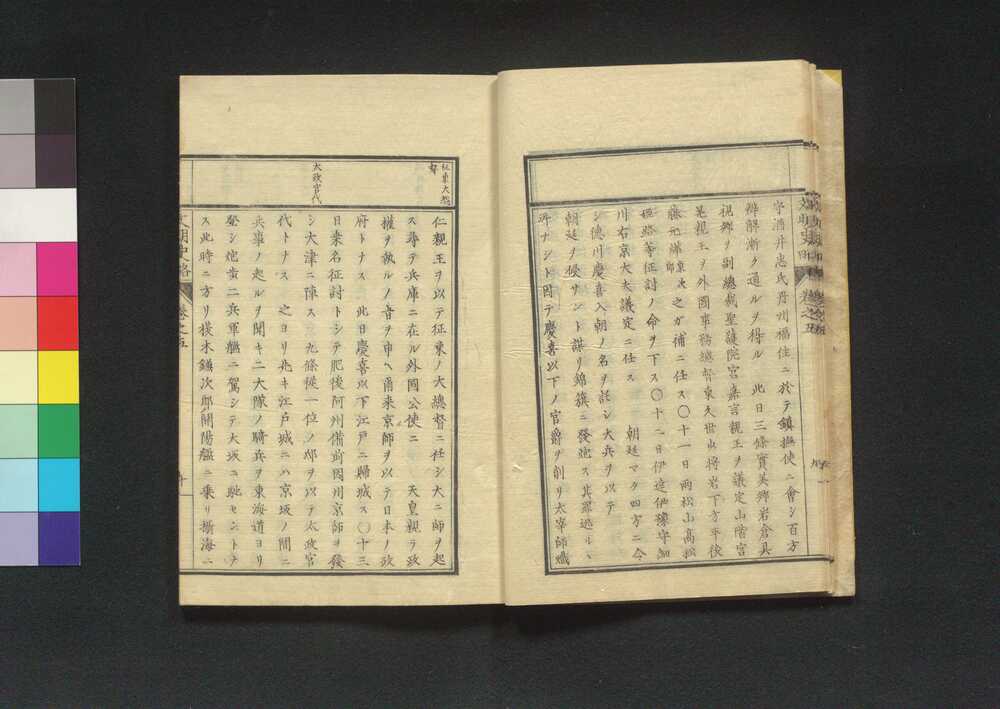 守酒井忠氏丹州福住ニ於テ鎮撫使ニ會シ百方
辨解漸ク通ルヲ得ル 此日三條實美卿岩倉具
視卿ヲ副總裁聖護院宮嘉言親王ヲ議定山階宮
晃親王ヲ外國事務總督東久世山将岩下方平後
藤元燁象次之ガ補ニ任ス〇十一日両松山高松
姫路等征討ノ命ヲ下ス〇十二日伊達伊豫守細
川右京大夫議定ニ任ス 朝廷マタ四方ニ令
シ德川慶喜入朝ノ名ヲ託シ大兵ヲ以テ
朝廷ヲ侵サント謀リ錦旗ニ發炮ス其罪逃ルヽ
所ナシト因テ慶喜以下ノ官爵ヲ削リ太宰帥熾
征東大總督
仁親王ヲ以テ征東ノ大總督ニ任シ大ニ師ヲ起
ス尋テ兵庫ニ在ル外國公使ニ 天皇親ラ政
權ヲ執ルノ旨ヲ申ヘ爾来京師ヲ以テ日本ノ政
府トナス 此日慶喜以下江戸ニ歸城ス〇十三
日桑名征討トシテ肥後阿州備前因州京師ヲ發
太政官代
シ大津ニ陣ス 九條從一位ノ邸ヲ以テ太政官
代トナス 之ヨリ先キ江戸城ニハ京坂ノ間ニ
兵事ノ起ルヲ聞キ二大隊ノ騎兵ヲ東海道ヨリ
登シ炮歩二兵軍艦ニ駕シテ大坂ニ馳セントテ
ス此時ニ方リ榎本鎌次郎開陽艦ニ乗リ摂海ニ
文明史略
卷之五
十